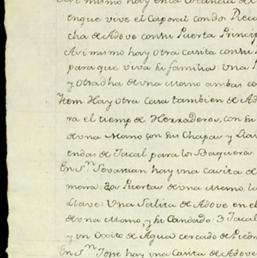 así mismo hay en la
en que vive el Caporal con dos Reca
cha de Adove con su Puerta Princip
Asi mismo hay otra Casita con su
para que viva su familia: Una
y Otra dha de una mano ambas con
Ytem Hay otra Casa tambien de Ad
ra el tiempo de Herraderos, con su
de una Mano con su Chapa y Lla
endas de Jacal para los Baqueros
En Sn. Sevastian hay una Casita de
mora: 2 Puertas de una mano, la
Llave: Una Salita de Adove en el
de una Mano, y su Candado: 3 Jacal
y un Oxito de Agua cercado de Piedra
En Sn. Jose hay una Casita de Adove